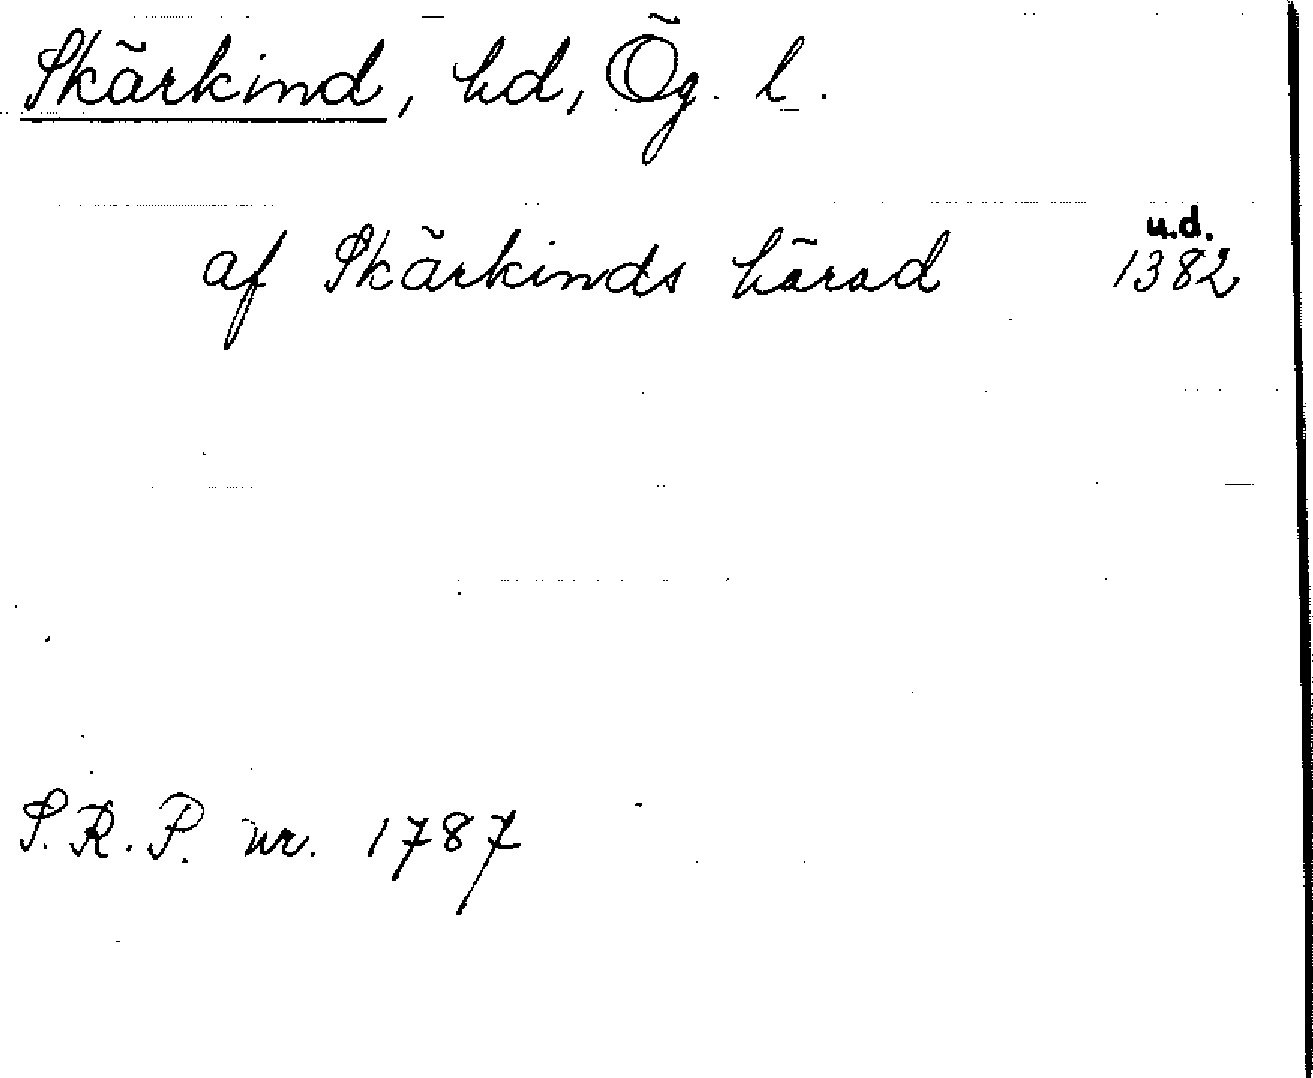 Skärkind, hd, Ög. l.
u.d.
af Skärkinds härad 1382
S.R.P. nr. 1787